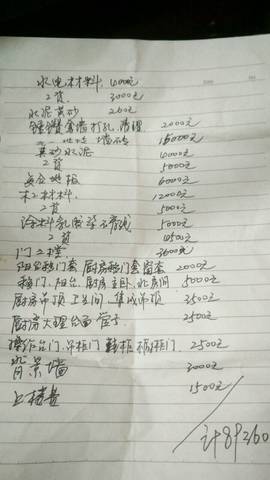 水电材料. 4000元
工资 3000元
水泥黄砂 260元
打孔.清理 2000元
地砖 墙砖 15000元
黄砂水泥 4000元
工资 5000元
地板 6000元
木工材料 12000元
工资 5000元
涂料乳胶漆 5000元
工资 4500元
门 3600元
阳台移门套 厨房移门套窗套 2000元
移门.阳台.厨房主卧.北房间 5000元
厨房吊顶 卫生间.集成吊顶 3500元
厨房大理台面 2500元
门.吊柜门 鞋柜 门 2500元
背景墙 3000元
上楼费 1500元
计89260